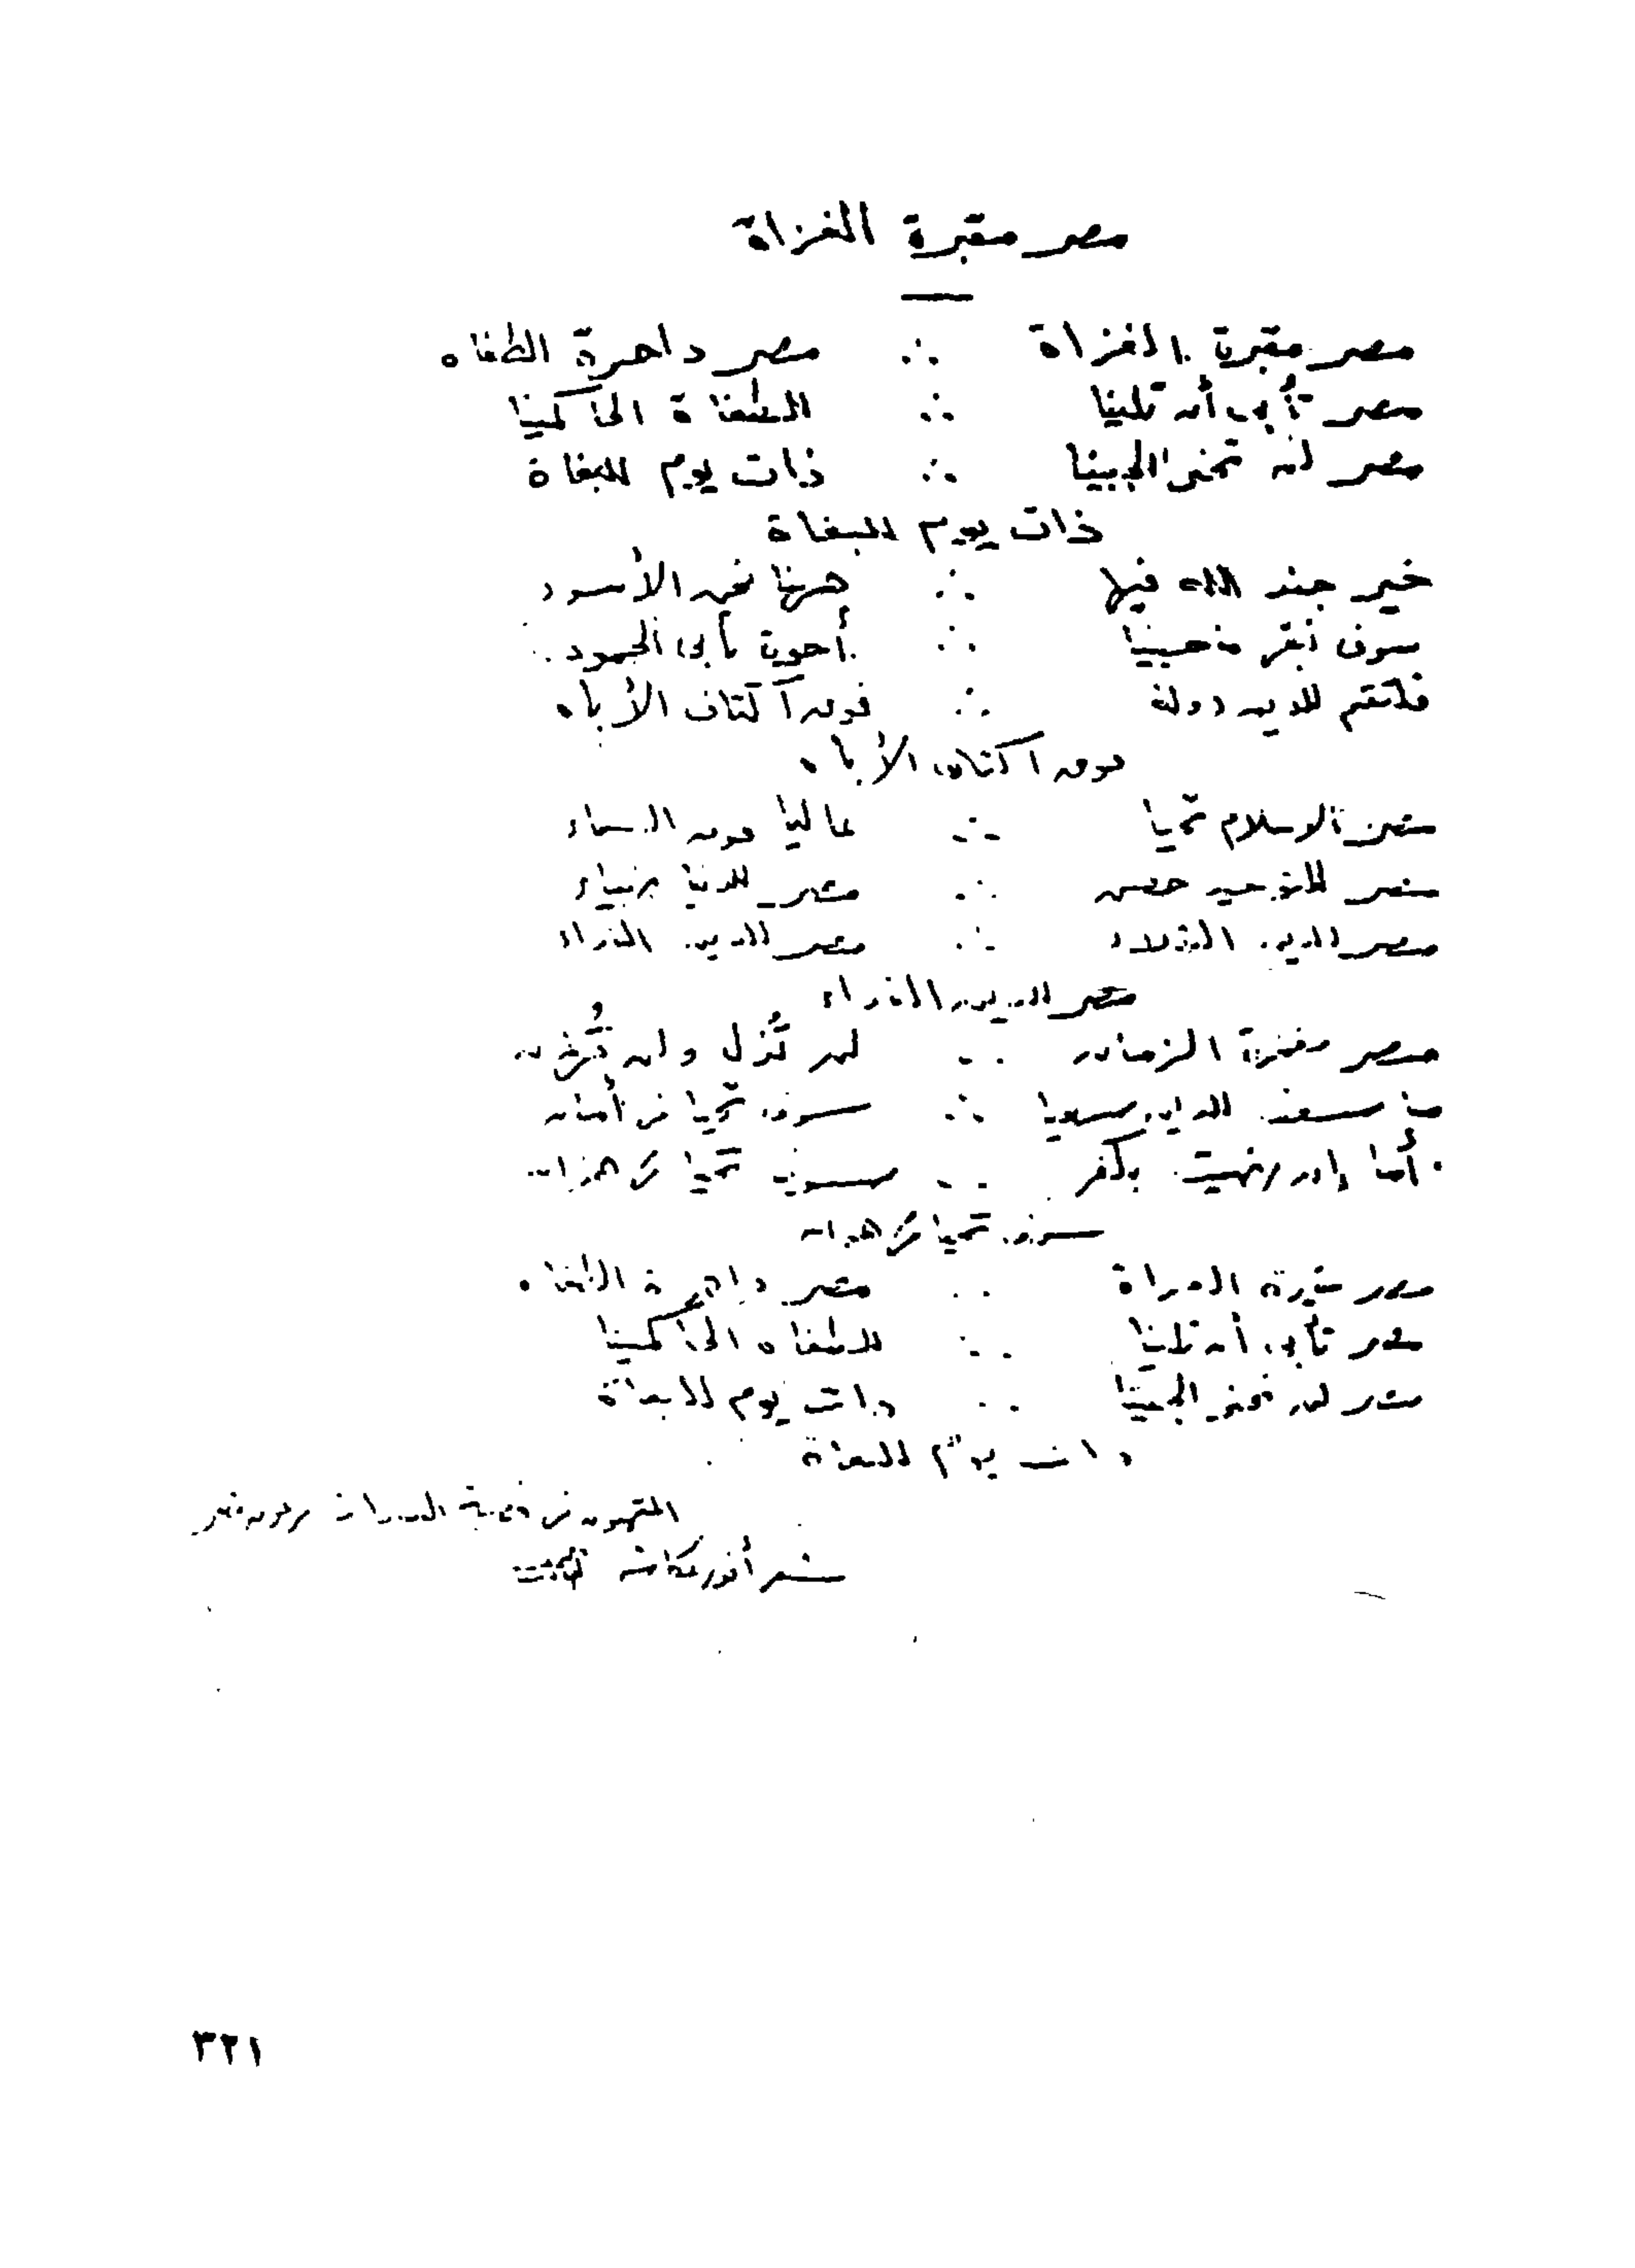 مصر مقبرة الغزاة
مصر مقبرة الغزاة ∴ مصر داحرة الطغاه
مصر تأبى أن تلينا ∴ للطغاة الحاكمينا
مصر لن تحنى الجبينا ∴ ذات يوم للبغاة
ذات يوم للبغاة
خير جند الله فيها ∴ هزنا نحن الأسود
سوف نبقى ∴ أخوة تأبى الجمود
فلتقم للدين دولة ∴ فوق أكتاف الأباه
فوق أكتاف الأباه
مصر الاسلام تحيا ∴ عاليا فوق السماء
مصر للتوحيد حصن ∴ مصر للدنيا ضياء
مصر للدين ∴ مصر للدين الفداء
مصر للدين الفداء
مصر مفخرة الزمان ∴ لن تُذل ولن تُهان
سوف تحيا فى أمان
أما إن رضيت بكفر ∴ سوف تحيا فى هوان
سوف تحيا فى هوان
مصر مقبرة الغزاة ∴ مصر داحرة الطغاه
مصر تأبى أن تلينا ∴ للطغاه الحاكمينا
مصر لن تحنى الجبينا ∴ ذات يوم للبغاة
ذات يوم للبغاة
المتهمون فى قضية
شعر أنور عكاشة
٣٢١